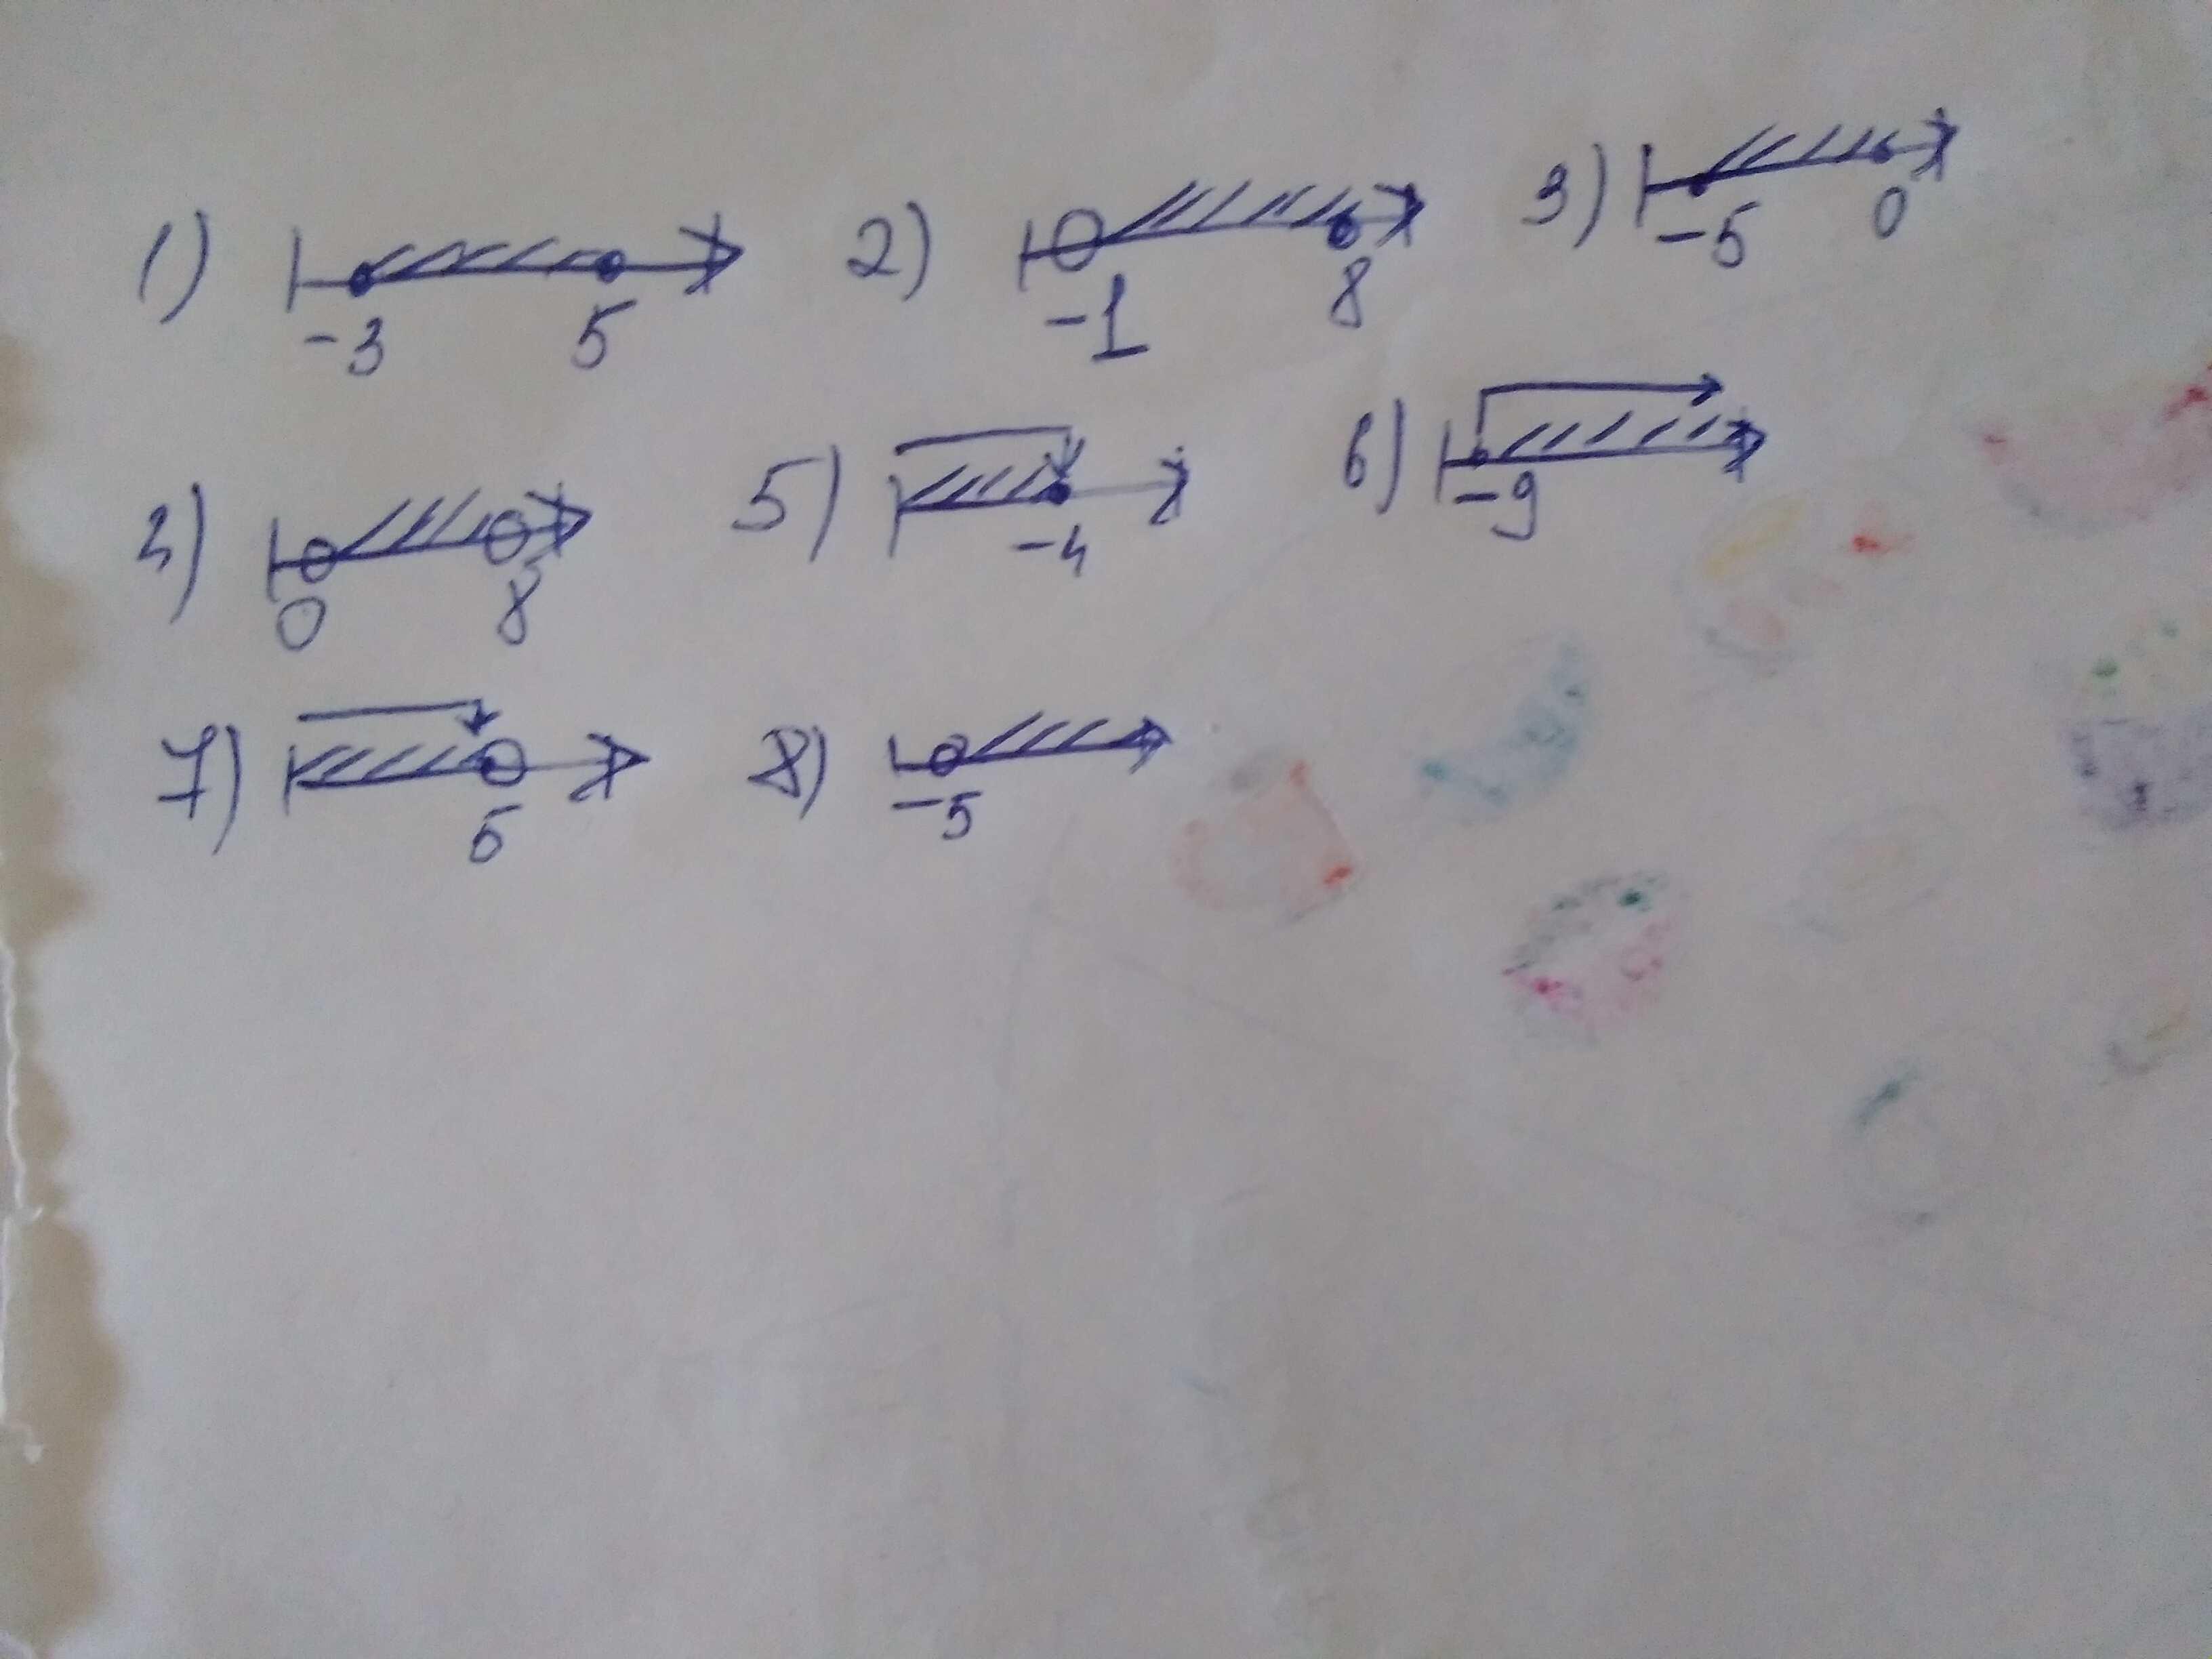 1) -3 5 2) -1 8 3) -5 0
4) 0 8 5) -4 6) -9
7) 5 8) -5